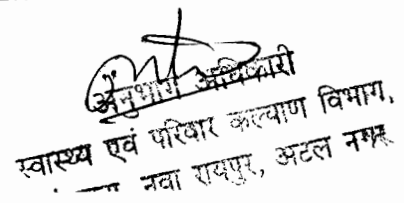 अनुभाग अधिकारी
स्वास्थ्य एवं परिवार कल्याण विभाग,
नवा रायपुर, अटल नगर